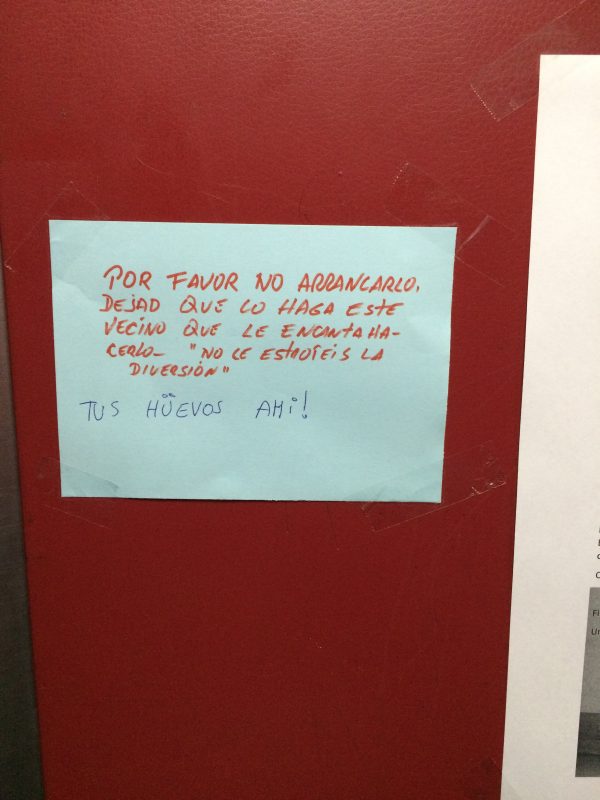 POR FAVOR NO ARRANCARLO,
DEJAD QUE LO HAGA ESTE
VECINO QUE LE ENCANTA HA-
CERLO_ "NO LE ESTROPEIS LA
DIVERSIÓN"
TUS HÜEVOS AMI!
Fi
Un